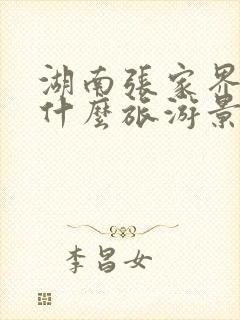 湖南張家界
什麼旅游景
李昌女